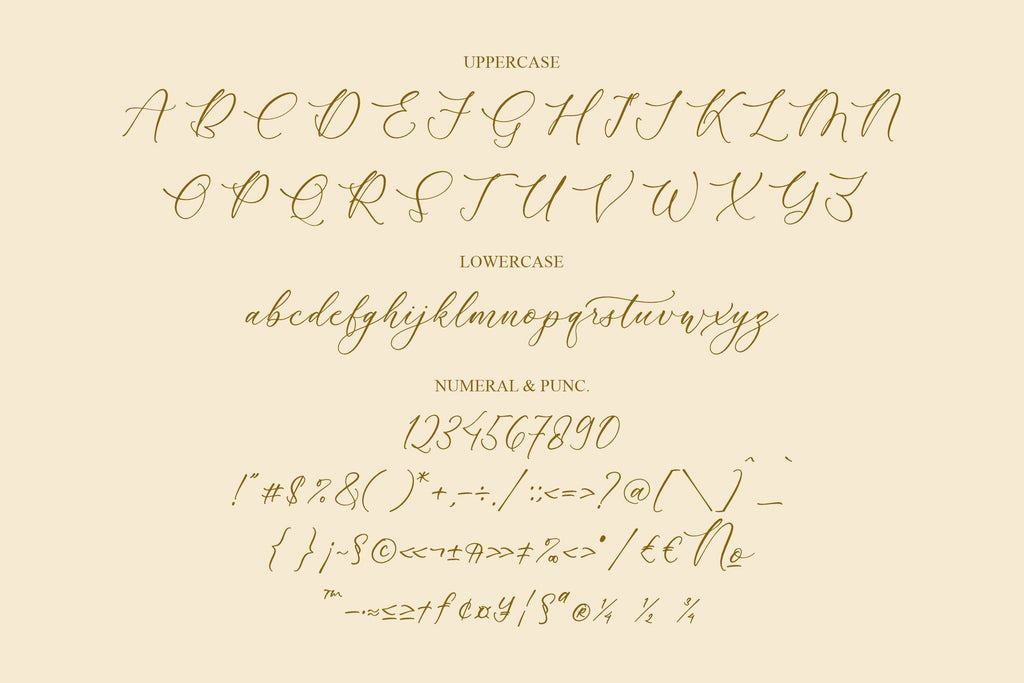 UPPERCASE
A B C D E F G H I J K L M N
O P Q R S T U V W X Y Z
LOWERCASE
abcdefghijklmnopqrstuvwxyz
NUMERAL & PUNC.
1234567890
!"#$%&( )*+,-÷./:;<=>?@[\]^_`
{ }¡~§©«¬±Ꞥ»‡‰<>•/€€№
™—·≈≤≥†ƒ¢¤¥¦§ª®¼ ½ ¾